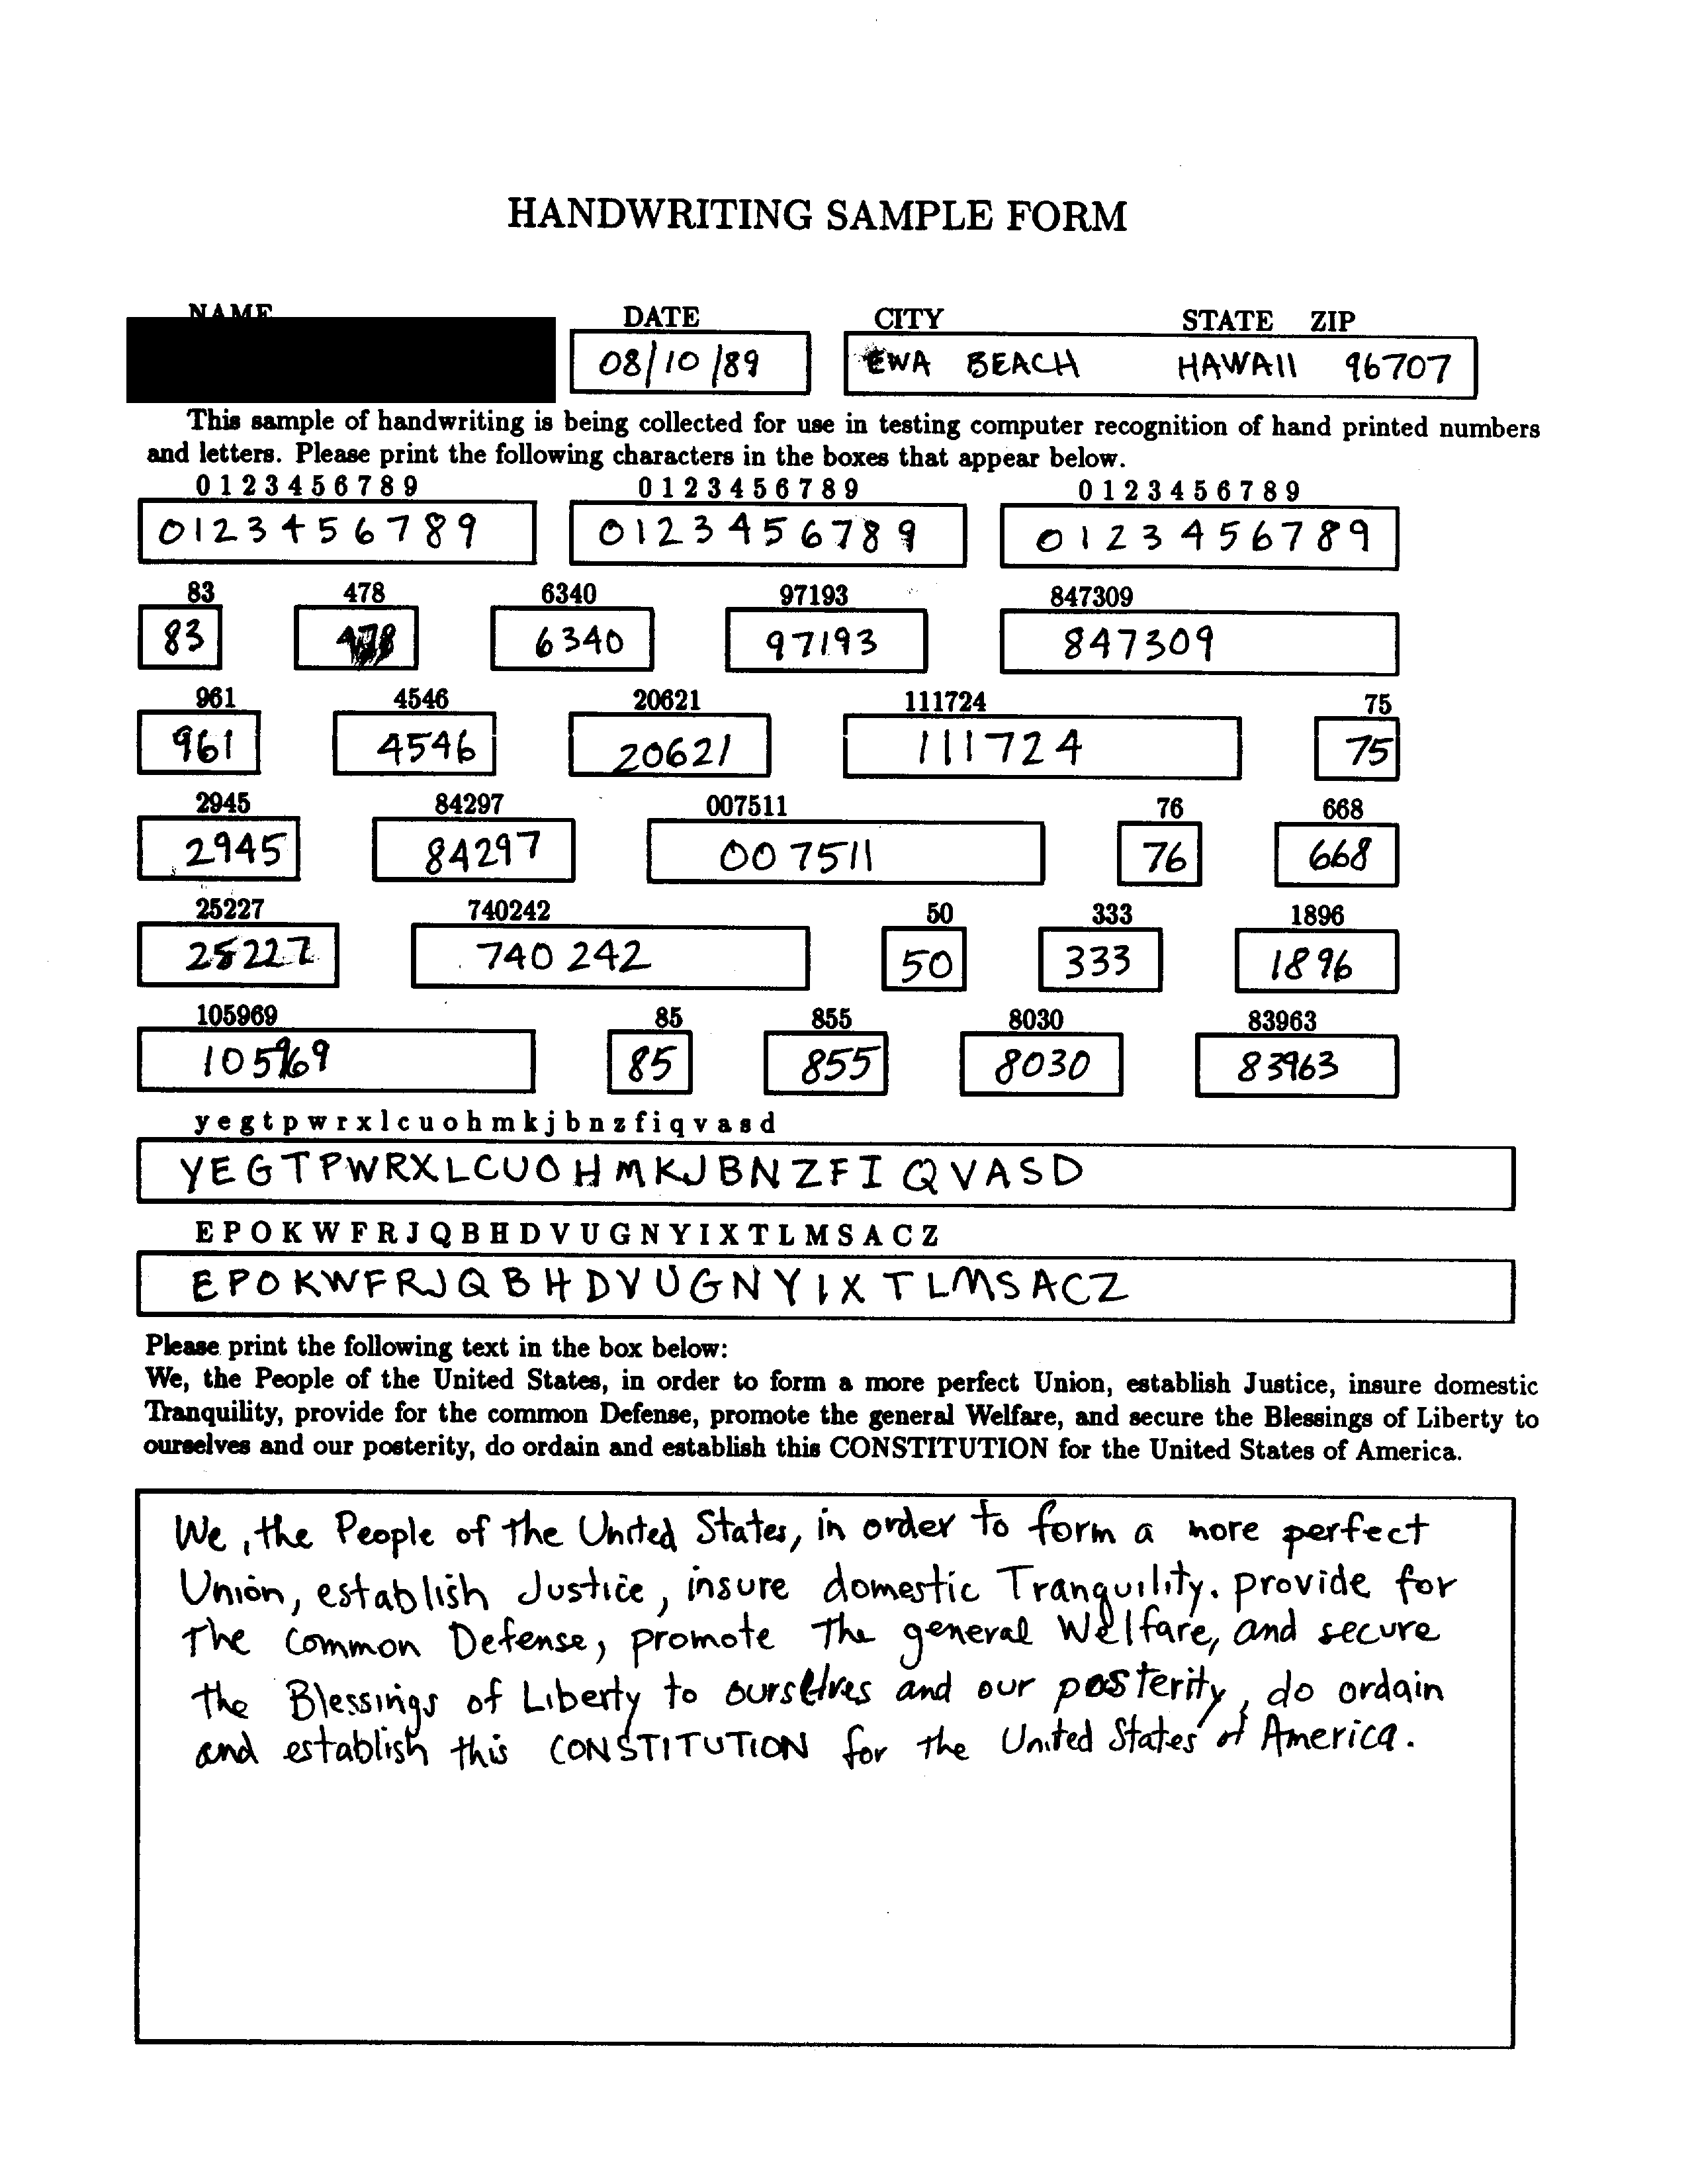 HANDWRITING SAMPLE FORM
NAME DATE CITY STATE ZIP
08/10/89 EWA BEACH HAWAII 96707
This sample of handwriting is being collected for use in testing computer recognition of hand printed numbers
and letters. Please print the following characters in the boxes that appear below.
0 1 2 3 4 5 6 7 8 9 0 1 2 3 4 5 6 7 8 9 0 1 2 3 4 5 6 7 8 9
0123456789 0123456789 0123456789
83 478 6340 97193 847309
83 478 6340 97193 847309
961 4546 20621 111724 75
961 4546 20621 111724 75
2945 84297 007511 76 668
2945 84297 007511 76 668
25227 740242 50 333 1896
25227 740 242 50 333 1896
105969 85 855 8030 83963
105969 85 855 8030 83963
y e g t p w r x l c u o h m k j b n z f i q v a s d
YEGTPWRXLCUOHMKJBNZFIQVASD
E P O K W F R J Q B H D V U G N Y I X T L M S A C Z
EPOKWFRJQBHDVUGNYIXTLMSACZ
Please print the following text in the box below:
We, the People of the United States, in order to form a more perfect Union, establish Justice, insure domestic
Tranquility, provide for the common Defense, promote the general Welfare, and secure the Blessings of Liberty to
ourselves and our posterity, do ordain and establish this CONSTITUTION for the United States of America.
We, the People of the United States, in order to form a more perfect
Union, establish Justice, insure domestic Tranquility. provide for
The Common Defense, promote The general Welfare, and secure
the Blessings of Liberty to ourselves and our posterity, do ordain
and establish this CONSTITUTION for the United States of America.